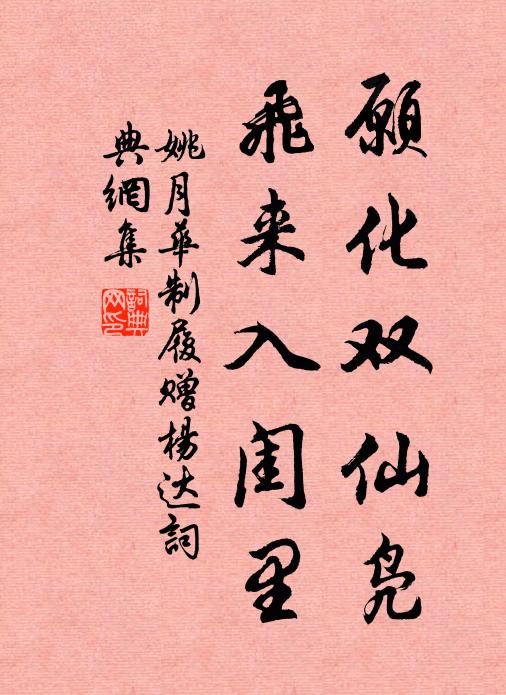 願化双仙凫
飛来入闺里
姚月華制履赠楊达詞
典網集
詞典网印